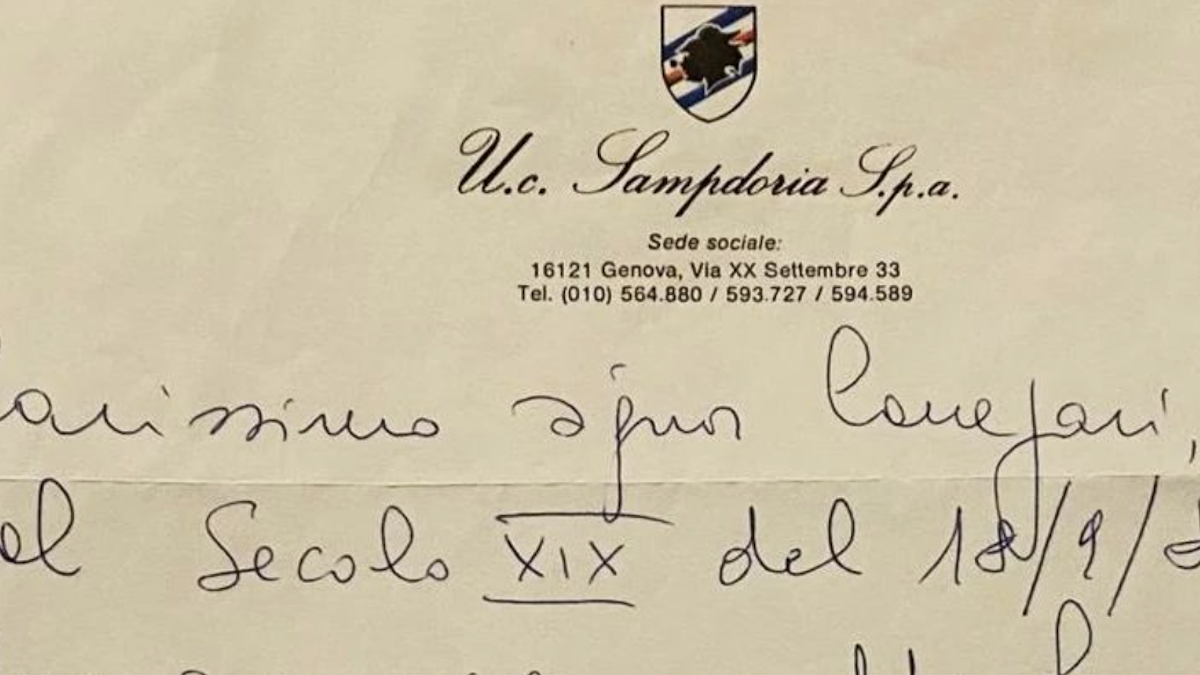 U.c. Sampdoria S.p.a.
Sede sociale:
16121 Genova, Via XX Settembre 33
Tel. (010) 564.880 / 593.727 / 594.589
arissimo signor Canepari,
el Secolo XIX del 18/9/8